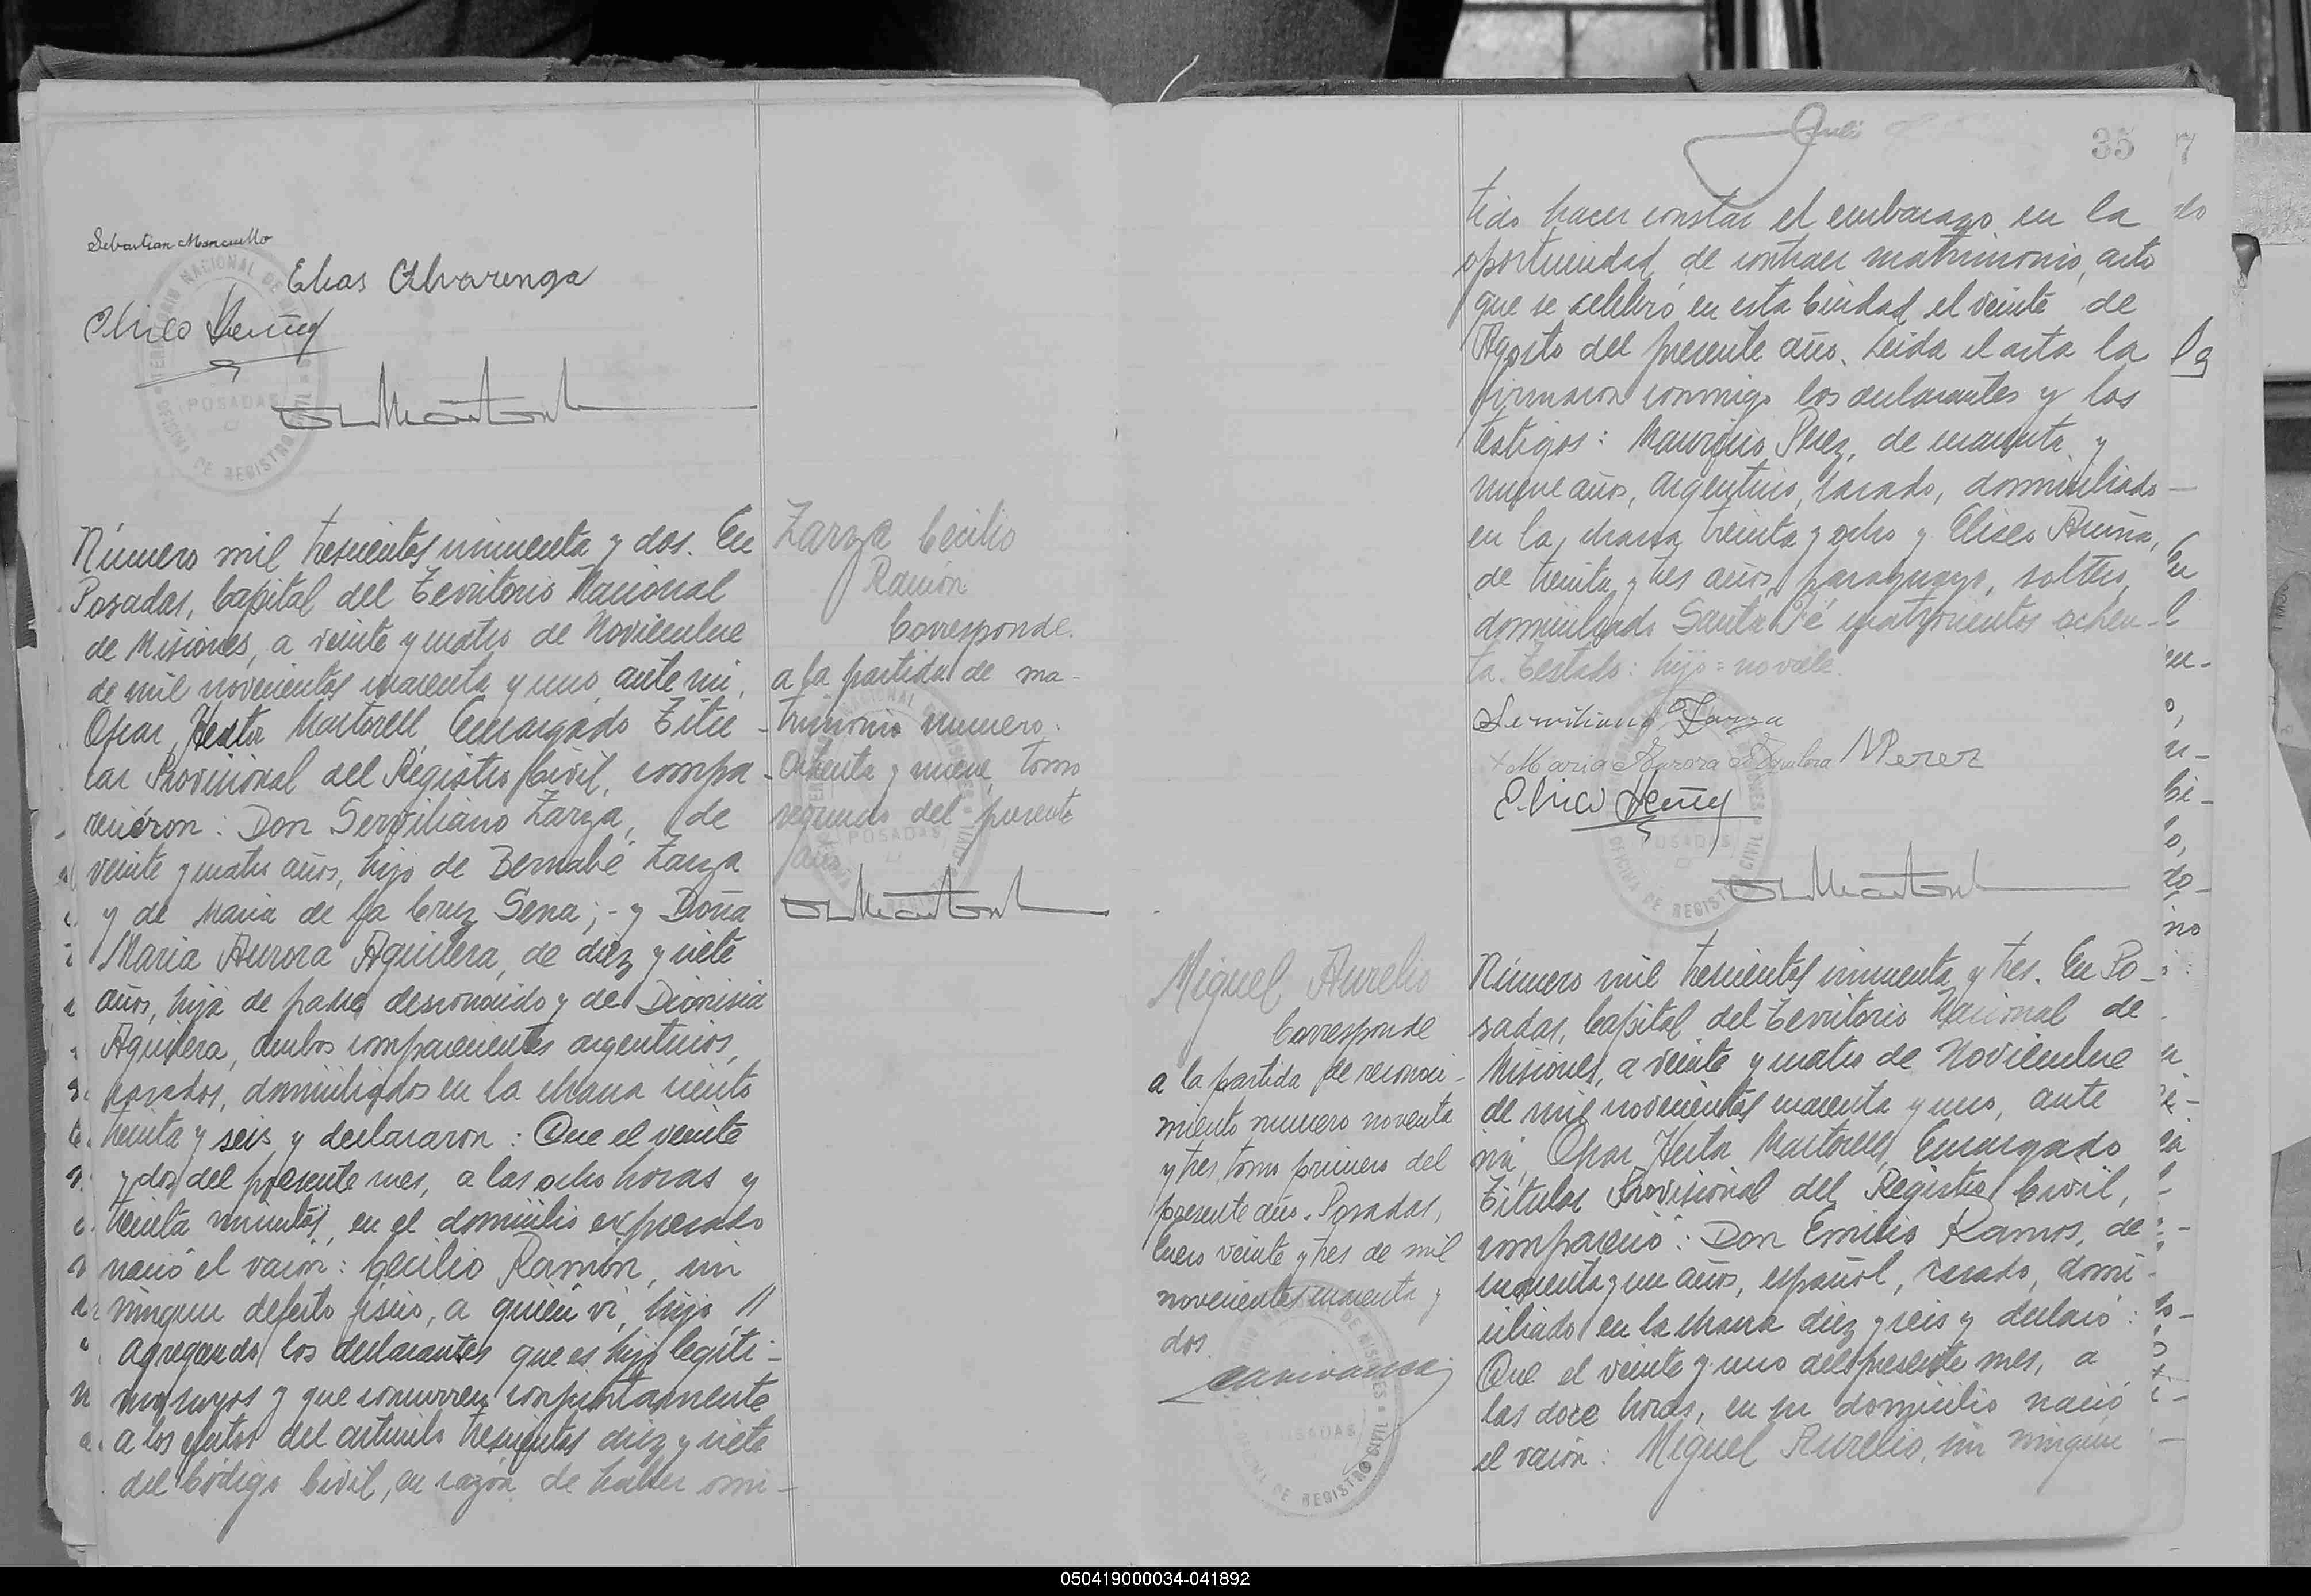 Sebastian Mancuello
Elias Alvarenga
POSADAS
Número mil trescientos cincuenta y dos. En
Posadas, Capital del Territorio Nacional
de Misiones, a veinte y cuatro de Noviembre
de mil novecientos cuarenta y uno, ante mi,
Oscar Hector Martorell, Encargado Titu-
lar Provisional del Registro Civil, compa-
recieron: Don Serviliano Zarza, de
veinte y cuatro años, hijo de Bernabé Zarza
y de Maria de la Cruz Sena;- y Doña
Maria Aurora Aguilera, de diez y siete
años, hija de padre desconocido y de Dionisia
Aguilera, ambos comparecientes argentinos,
casados, domiciliados en la chacra ciento
treinta y seis y declararon: Que el veinte
y dos del presente mes, a las ocho horas y
treinta minutos, en el domicilio expresado
nació el varón: Cecilio Ramón, sin
ningun defecto fisico, a quien vi, hijo //
agregando los declarantes que es hijo legíti-
mo suyos y que concurren conjuntamente
a los efectos del articulo trescientos diez y siete
del Código Civil, en razón de haber omi-
Zarza Cecilio
Ramón.
Corresponde
a la partida de ma-
trimonio numero
ochenta y nueve, tomo
segundo del presente
año
POSADAS
35
tido hacer constar el embarazo en la
oportunidad de contraer matrimonio, acto
que se celebró en esta Ciudad el veinte de
Agosto del presente año. Leida el acta la
firmaron conmigo los declarantes y los
testigos: Mauricio Perez, de cuarenta y
nueve años, argentino, casado, domiciliado
en la chacra treinta y ocho y Eliseo
de treinta y tres años, paraguayo, soltero,
domiciliado Santa Fé cuatrocientos ochen-
ta. Testado: hijo = no vale.
Serviliano Zarza
Maria Aurora Aguilera M Perez
POSADAS
Miguel Aurelio
Corresponde
a la partida de reconoci-
miento numero noventa
y tres tomo primero del
presente año. Posadas,
Enero veinte y tres de mil
novecientos cuarenta y
dos.
Número mil trescientos cincuenta y tres. En Po-
sadas, Capital del Territorio Nacional de
Misiones, a veinte y cuatro de Noviembre
de mil novecientos cuarenta y uno, ante
mi, Oscar Hector Martorell, Encargado
Titular Provisional del Registro Civil,
compareció: Don Emilio Ramos, de
cincuenta y un años, español, casado, domi-
ciliado en la chacra diez y seis y declaró:
Que el veinte y uno del presente mes, a
las doce horas, en su domicilio nació
el varón: Miguel Aurelio, sin ningun
050419000034-041892